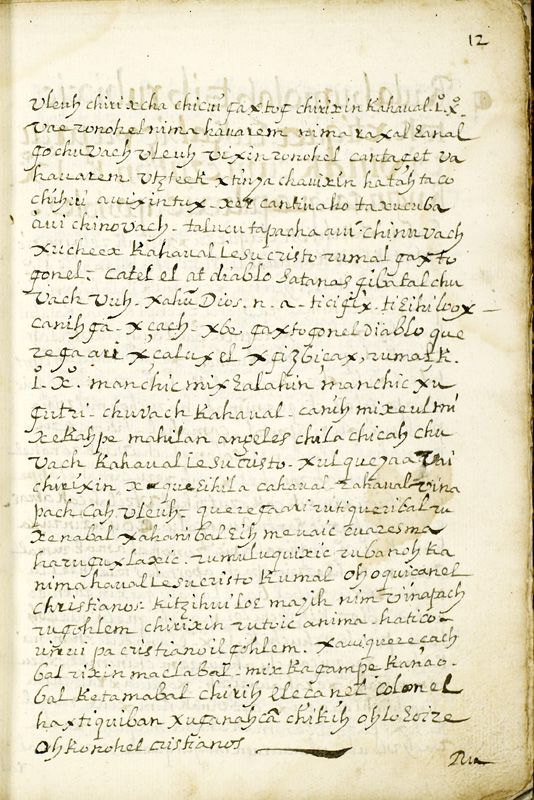 12
vleuh chirixcha chicui gaxtog chirixin Kahaval. I. x.
vae ronohel nima hauarem nima raxal ɛanal
go chuvach vleuh vixin ronohel cantaget va
hauarem vtzteek xtinya chauixin hatah taco
chihii auixintux
aui chinovach - talucutapacha aui chinuvach
xucheex Kahaval Iesucristo rumal gaxto
gonel- catel el at diablo Satanas
vach vuh - xahu Dios. n. a -
canih ga - xcach - xbe gaxtogonel diablo que
rega ari
I. x. manchic mixɛalahin manchic xu
gutri - chuvach Kahaval - canih mixeulmi
xekahpe mahilan angeles chila chicah chu
vach Kahaval Iesucristo - xul queyaa vai
chirixin cahaval - Rahaval vina
pach cah vleuh - queregaari rutiqueribal ru
xenabal xahanibal ɛih mevaic cuaresma
haruguxlaxic - rumuluquixic rubanoh ka
nimahaval Iesucristo Rumal oh oquicanel
christianos - kitzihui loɛ mayih nim vinapach
rugohlem chirixin rutoic anima - hatico -
virrui pa cristianoil gohlem - xaui quere cach
bal rixin maclabal - mixkagampe kanao -
bal ketamabal chirih elecanel colonel
haxtiquiban xuganah ca chikih oh loɛoire
oh konohel cristianos